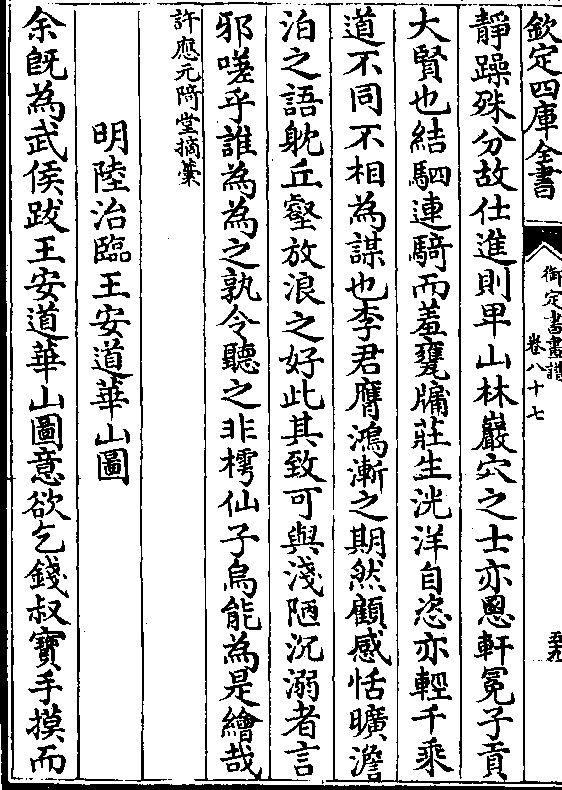 欽定四庫全書
御定書畫譜
卷八十七
五九
靜躁殊分故仕進則卑山林巖穴之士亦慁軒冕子貢
大賢也結駟連騎而羞甕牖莊生洸洋自恣亦輕千乘
道不同不相為謀也李君膺鴻漸之期然顧感恬曠澹
泊之語躭丘壑放浪之好此其致可與淺陋沉溺者言
邪嗟乎誰為為之孰令聽之非樗仙子烏能為是繪哉
許應元陭堂摘藁
明陸治臨王安道華山圖
余旣為武侯跋王安道華山圖意欲乞錢叔寶手摸而